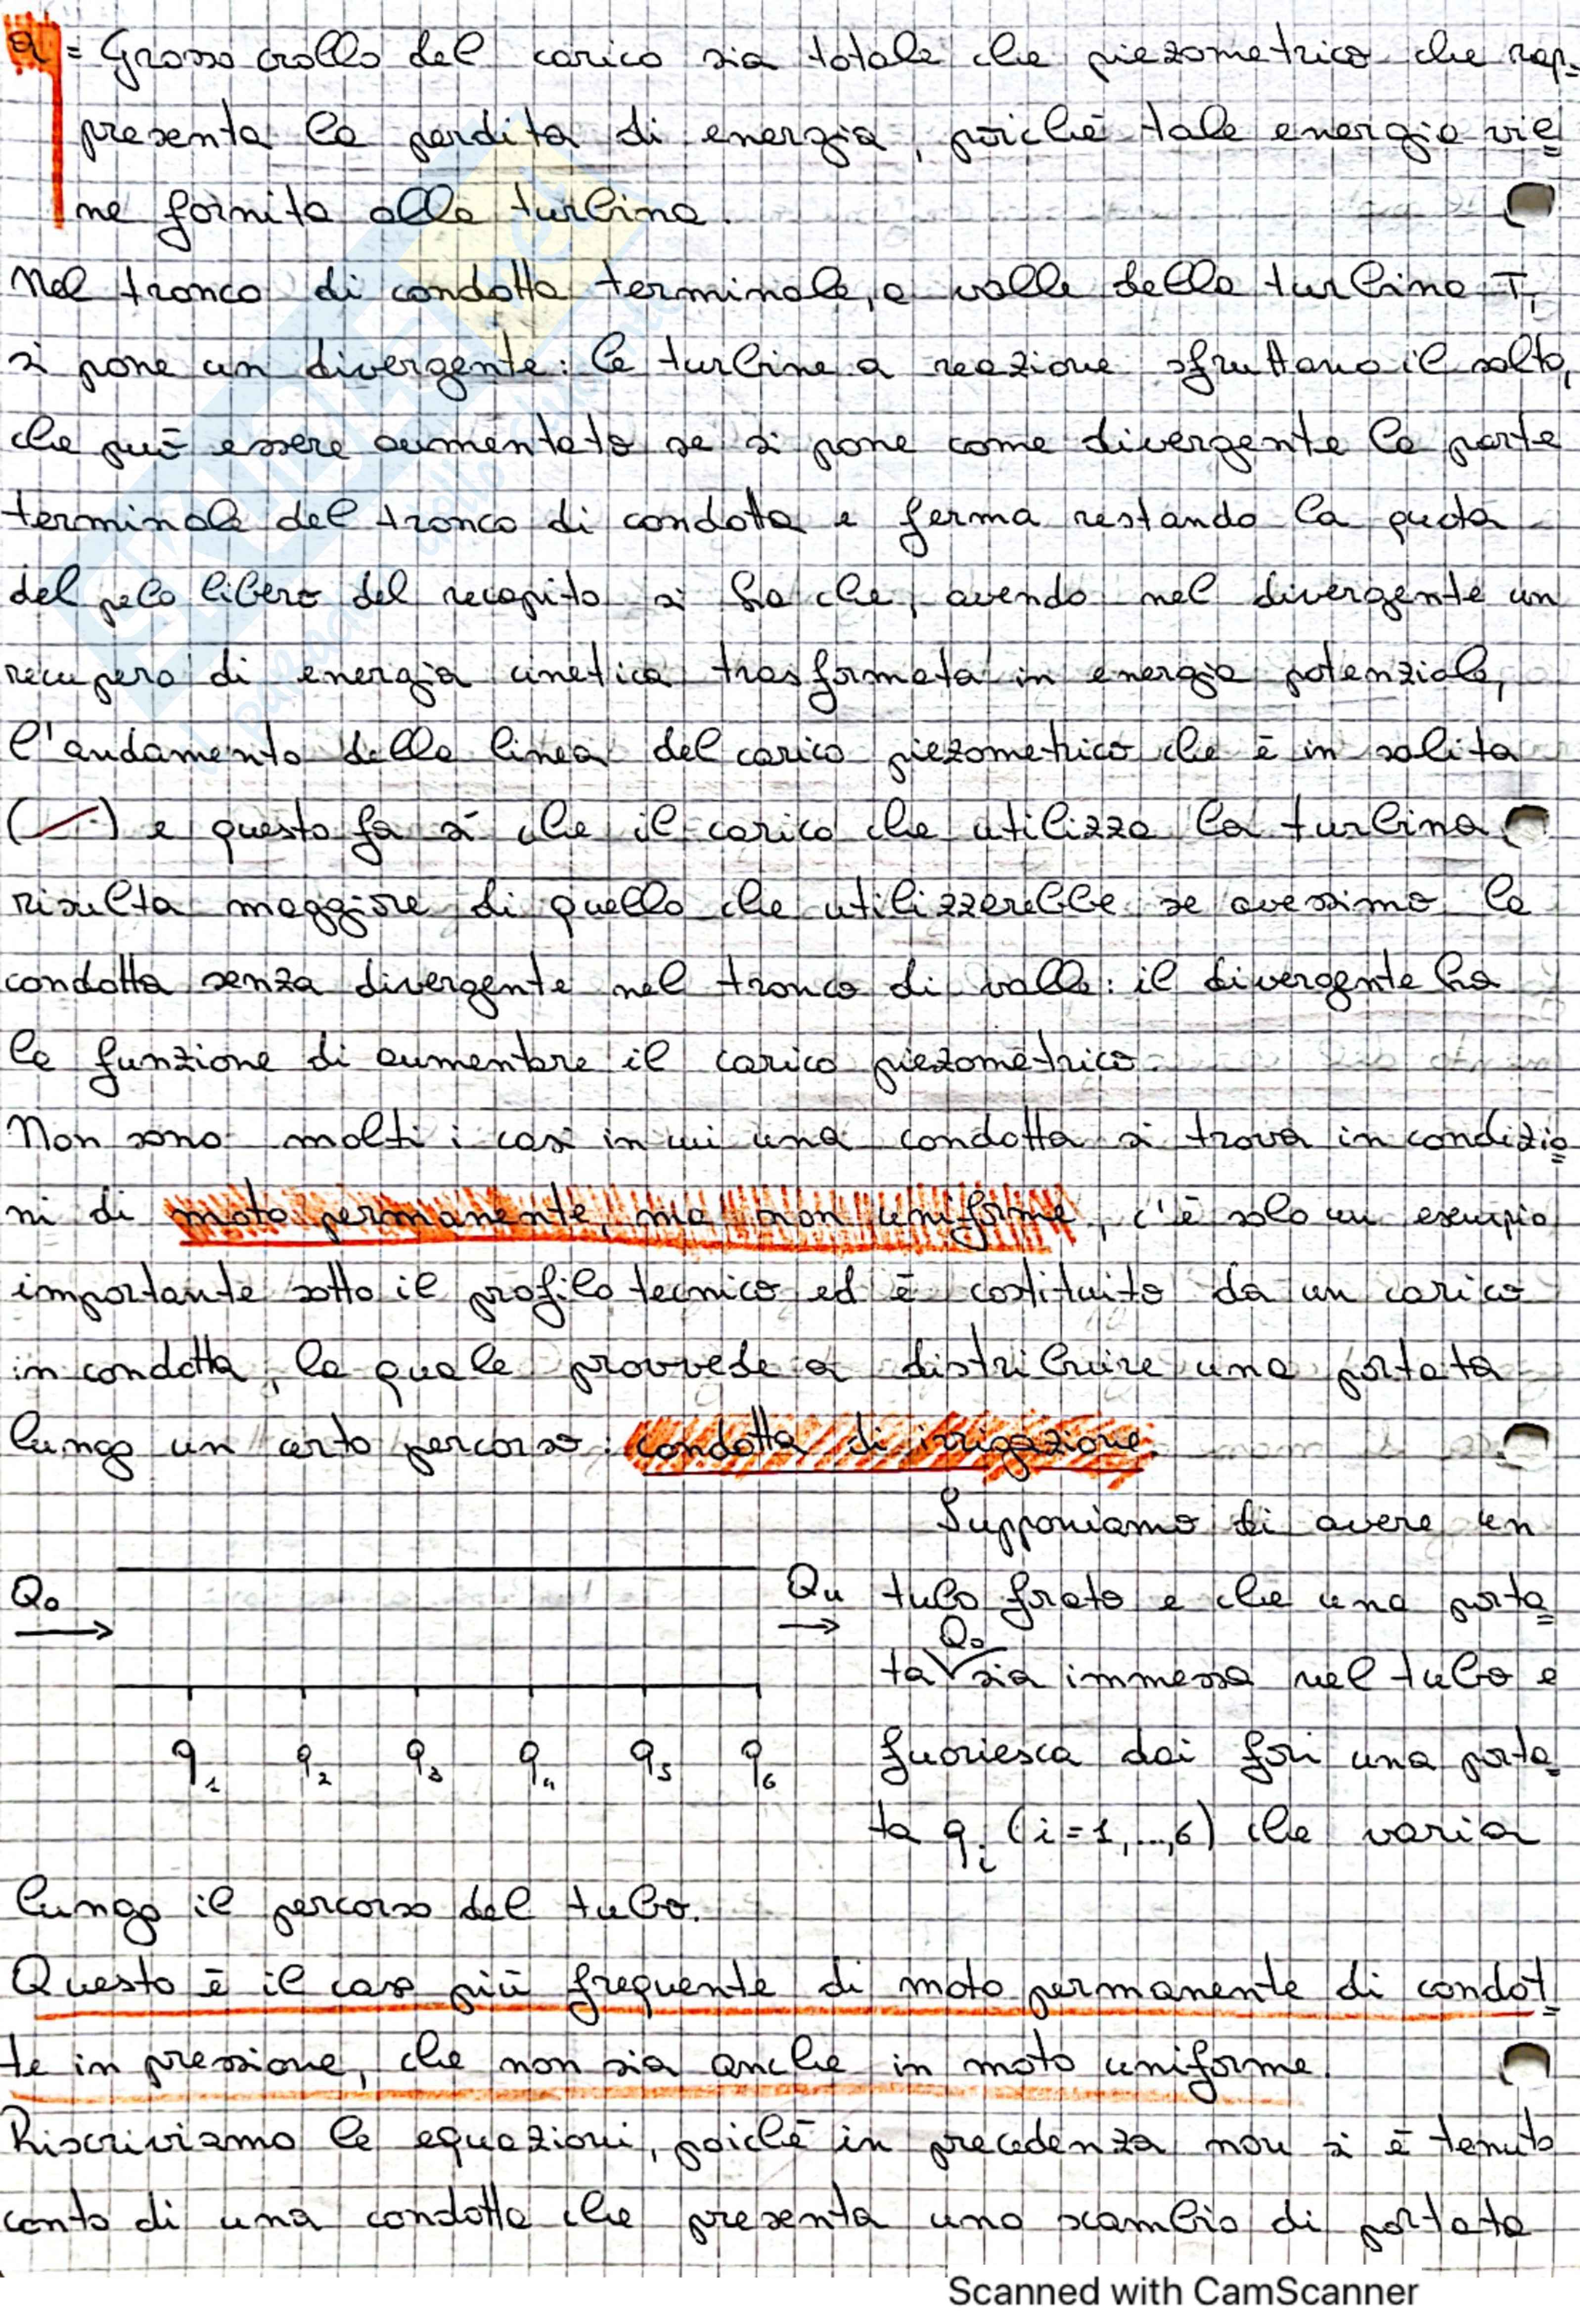 a = Grosso crollo del carico sia totale che piezometrico che rap=
presenta la perdita di energia, poichè tale energia vie=
ne fornita alla turbina.
Nel tronco di condotta terminale, a valle della turbina T,
si pone un divergente: le turbine a reazione sfruttano il salto,
che può essere aumentato se si pone come divergente la parte
terminale del tronco di condotta e ferma restando la quota
del pelo libero del recapito si ha che, avendo nel divergente un
recupero di energia cinetica trasformata in energia potenziale,
l'andamento della linea del carico piezometrico che è in salita
( ) e questo fa sì che il carico che utilizza la turbina
risulta maggiore di quello che utilizzerebbe se avessimo la
condotta senza divergente nel tronco di valle: il divergente ha
la funzione di aumentare il carico piezometrico.
Non sono molti i casi in cui una condotta si trova in condizio=
ni di moto permanente, ma non uniforme, c'è solo un esempio
importante sotto il profilo tecnico ed è costituito da un carico
in condotta, la quale provvede a distribuire una portata
lungo un certo percorso: condotta di irrigazione.
Supponiamo di avere un
Q₀ Qu tubo forato e che una porta=
ta Q₀ sia immessa nel tubo e
q₁ q₂ q₃ q₄ q₅ q₆ fuoriesca dai fori una porta=
ta qi (i=1,...,6) che varia
lungo il percorso del tubo.
Questo è il caso più frequente di moto permanente di condot=
te in pressione, che non sia anche in moto uniforme.
Riscriviamo le equazioni, poichè in precedenza non si è tenuto
conto di una condotta che presenta uno scambio di portata
Scanned with CamScanner